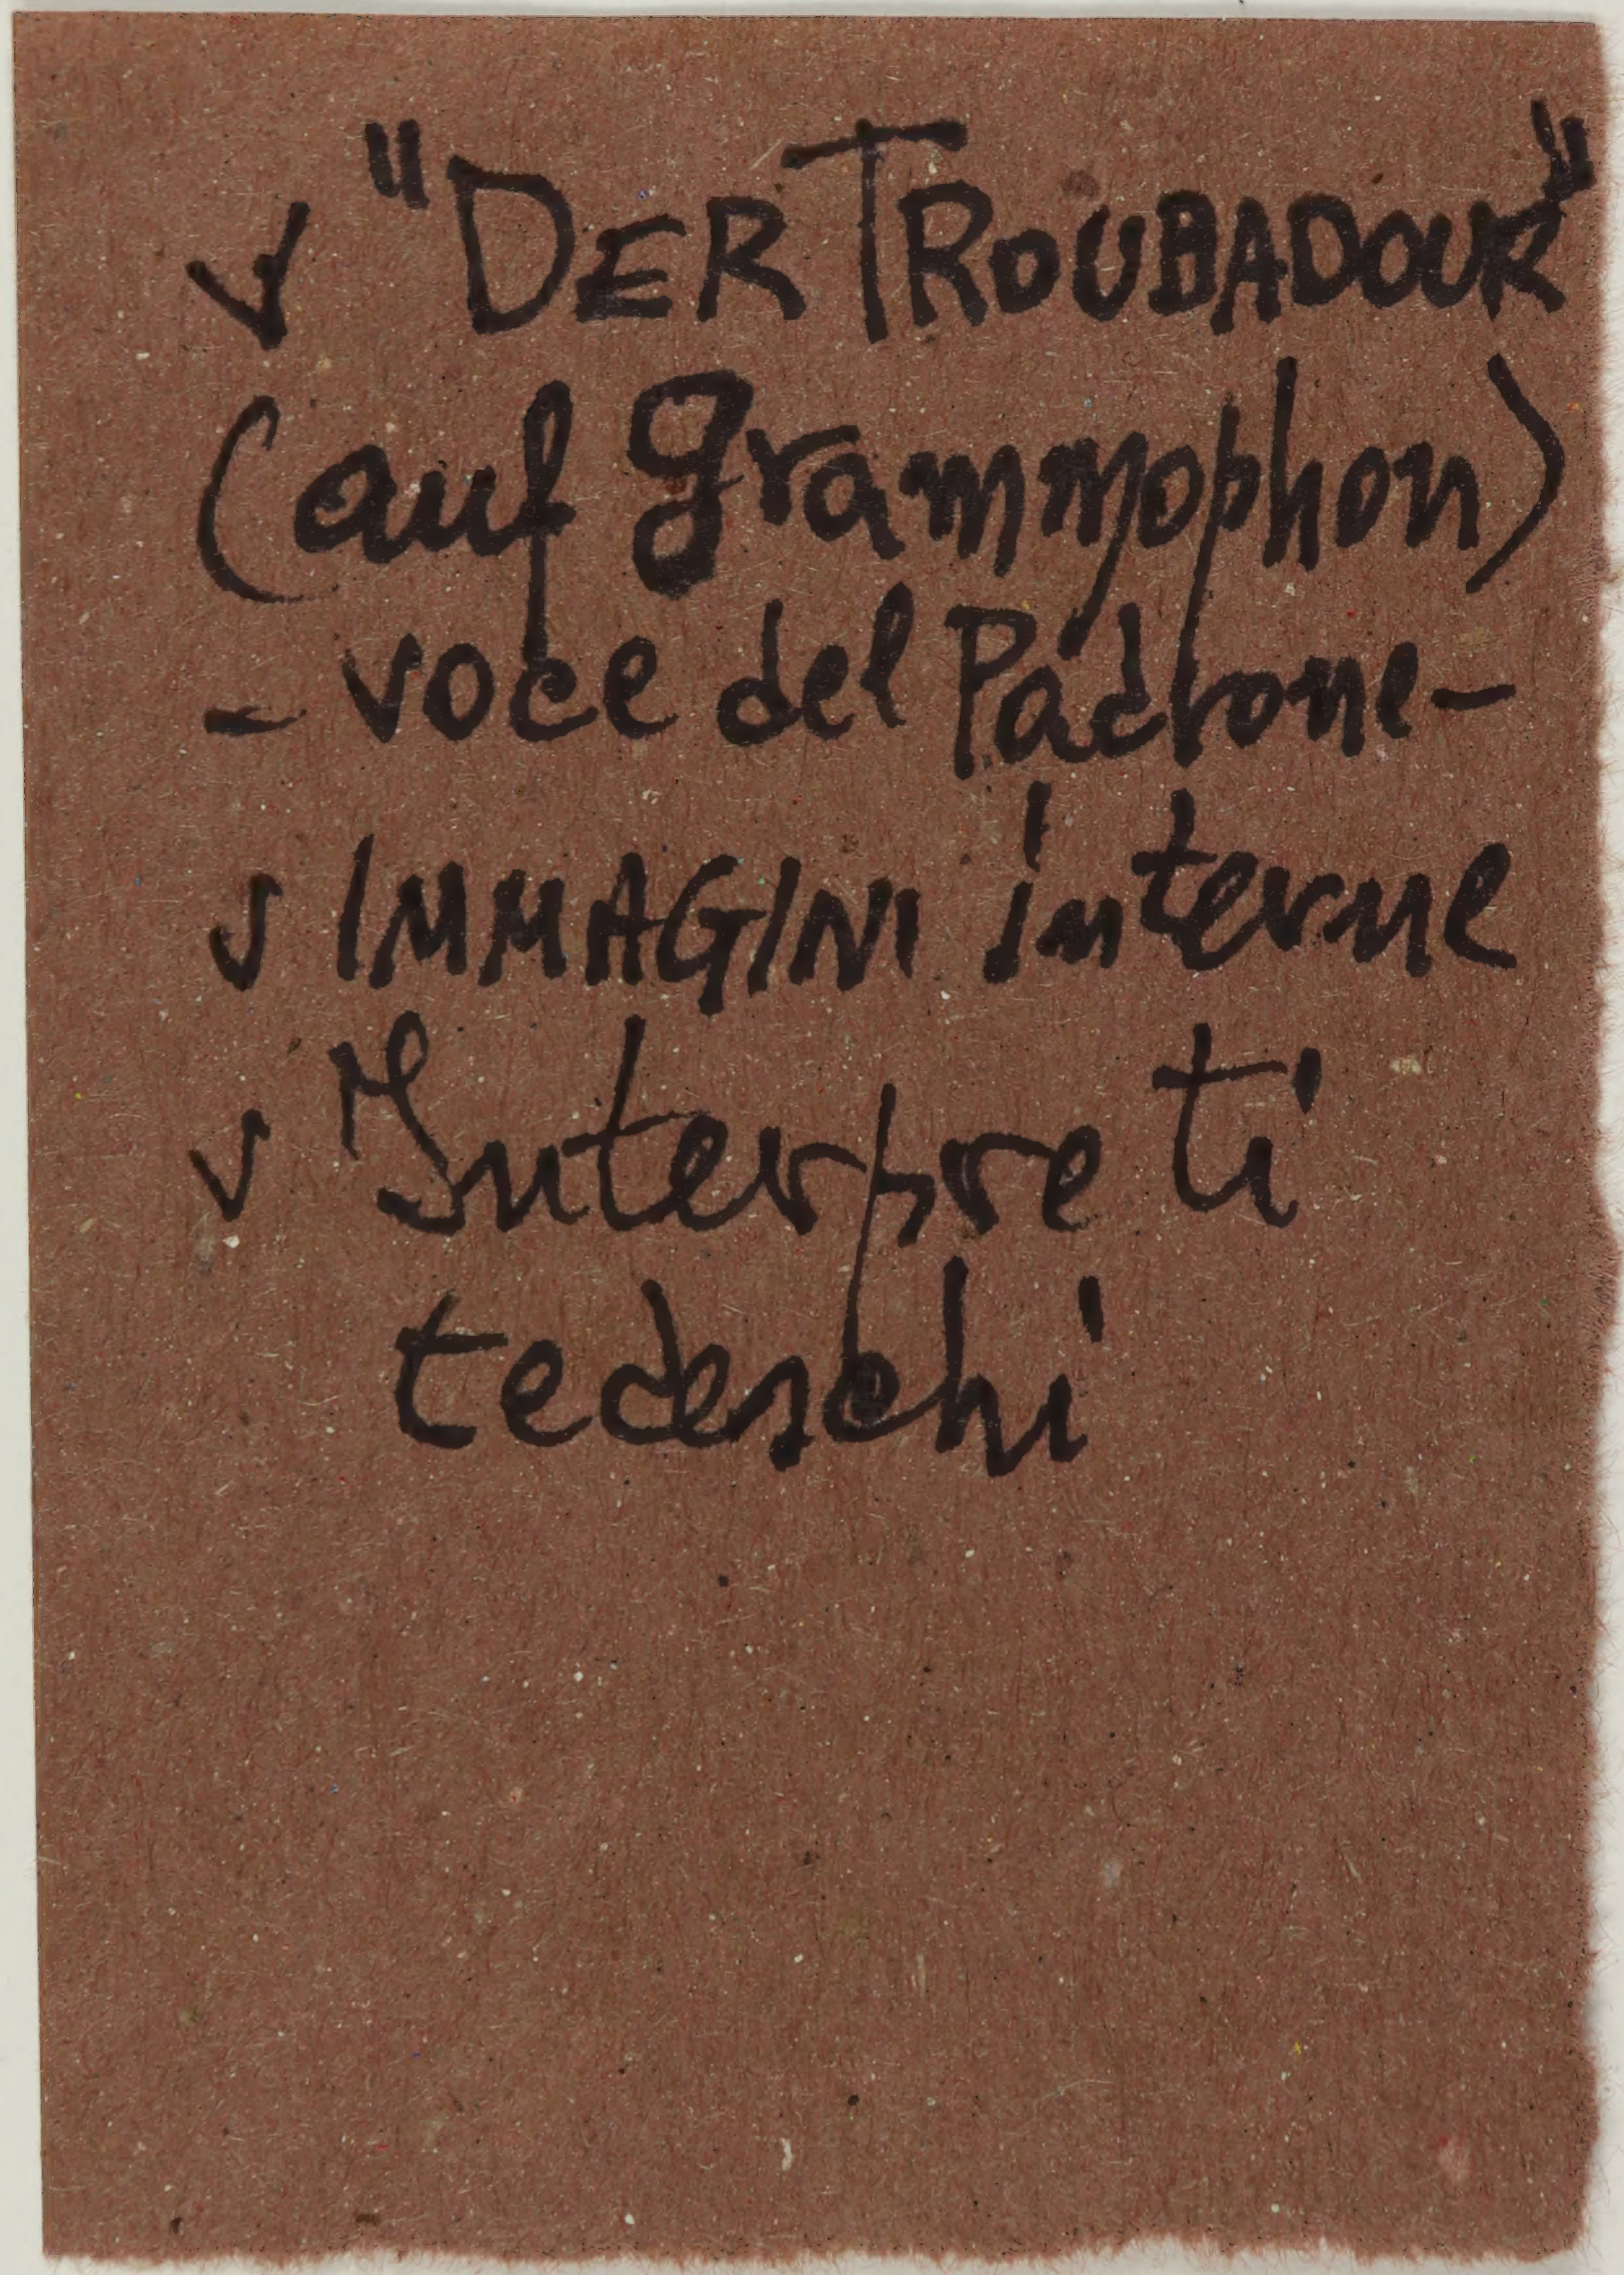 ✓ "DER TROUBADOUR"
(auf grammophon)
- voce del Padrone -
✓ IMMAGINI interne
✓ Interpreti
tedeschi